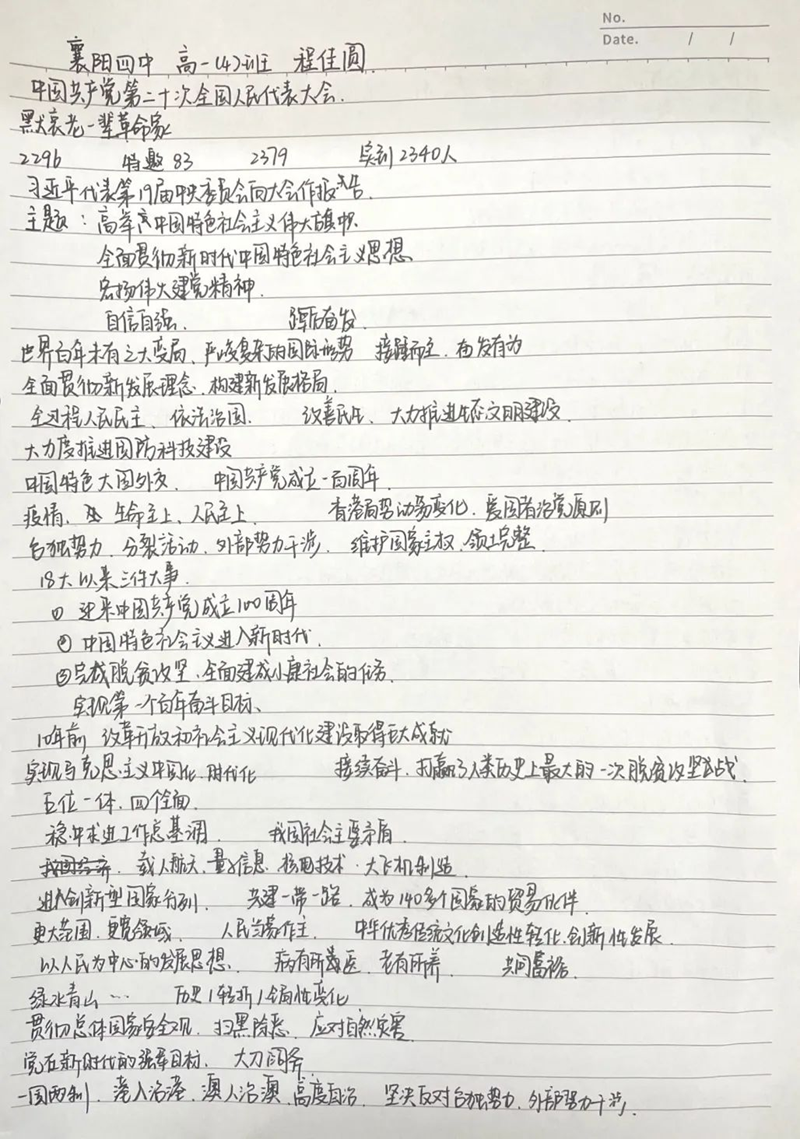 No.
Date. / /
襄阳四中 高一(4)班 程佳圆
中国共产党第二十次全国人民代表大会.
默哀老一辈革命家
2296 特邀83 2379 实到2340人
习近平代表第19届中央委员会向大会作报告.
主题：高举中国特色社会主义伟大旗帜
全面贯彻新时代中国特色社会主义思想
弘扬伟大建党精神.
自信自强. 踔厉奋发.
世界百年未有之大变局、严峻复杂的国际形势 接踵而至. 奋发有为
全面贯彻新发展理念、构建新发展格局.
全过程人民民主、依法治国. 改善民生、大力推进生态文明建设.
大力度推进国防科技建设
中国特色大国外交. 中国共产党成立一百周年.
疫情、生命至上、人民至上. 香港局势动荡变化. 爱国者治党原则
台独势力、分裂活动、外部势力干涉. 维护国家主权、领土完整.
18大以来三件大事.
① 迎来中国共产党成立100周年
② 中国特色社会主义进入新时代.
③ 完成脱贫攻坚、全面建成小康社会的任务.
实现第一个百年奋斗目标、
10年前 改革开放和社会主义现代化建设取得巨大成就
实现马克思主义中国化时代化 接续奋斗、打赢了人类历史上最大的一次脱贫攻坚战.
五位一体、四个全面.
稳中求进工作总基调. 我国社会主要矛盾.
载人航天、量子信息、核电技术·大飞机制造
进入创新型国家行列. 共建一带一路、成为140多个国家的贸易伙伴.
更大范围、更宽领域. 人民当家作主. 中华优秀传统文化创造性转化、创新性发展.
以人民为中心的发展思想. 病有所医、老有所养. 共同富裕.
绿水青山… 历史/转折/全局性变化
贯彻总体国家安全观. 扫黑除恶. 应对自然灾害
党在新时代的强军目标. 大刀阔斧.
一国两制. 港人治港、澳人治澳、高度自治. 坚决反对台独势力、外部势力干涉.